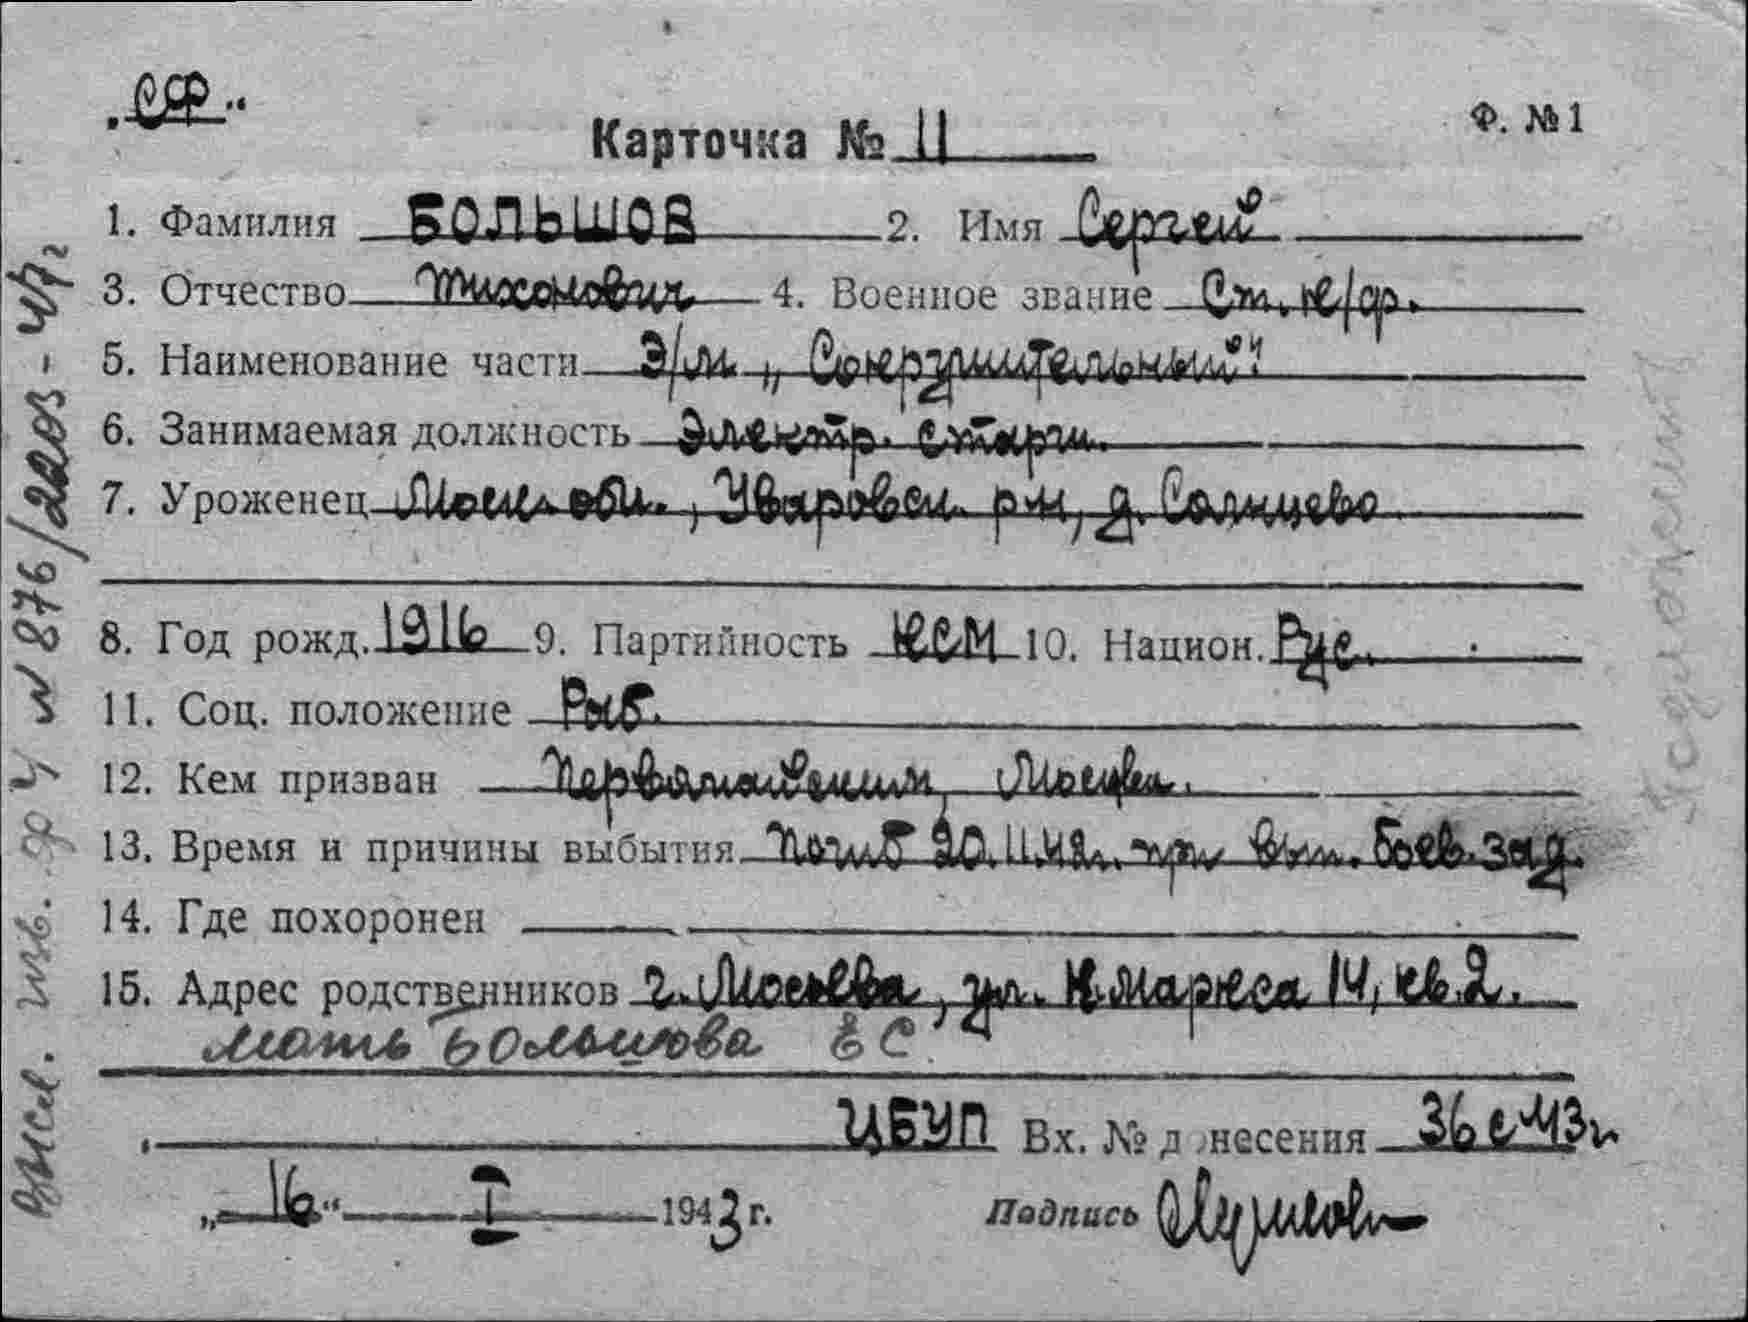 „СФ“
Карточка № 11
Ф. № 1
1. Фамилия БОЛЬШОВ 2. Имя Сергей
3. Отчество Тихонович 4. Военное звание Ст. к/ф.
5. Наименование части Э/м „Сокрушительный“
6. Занимаемая должность Электр. старш.
7. Уроженец Моск. обл., Уваровск. р-н, д. Солнцево
8. Год рожд. 1916 9. Партийность КСМ 10. Национ. Рус.
11. Соц. положение Раб.
12. Кем призван Первомайским, Москва.
13. Время и причины выбытия Погиб 20.11.42г. при вып. боев. зад.
14. Где похоронен
15. Адрес родственников г. Москва, ул. К. Маркса 14, кв. 2.
мать Большова Е С.
ЦБУП Вх. № донесения 36с 43г
„16“ I 1943 г. Подпись
№ 876/2203 - 47г